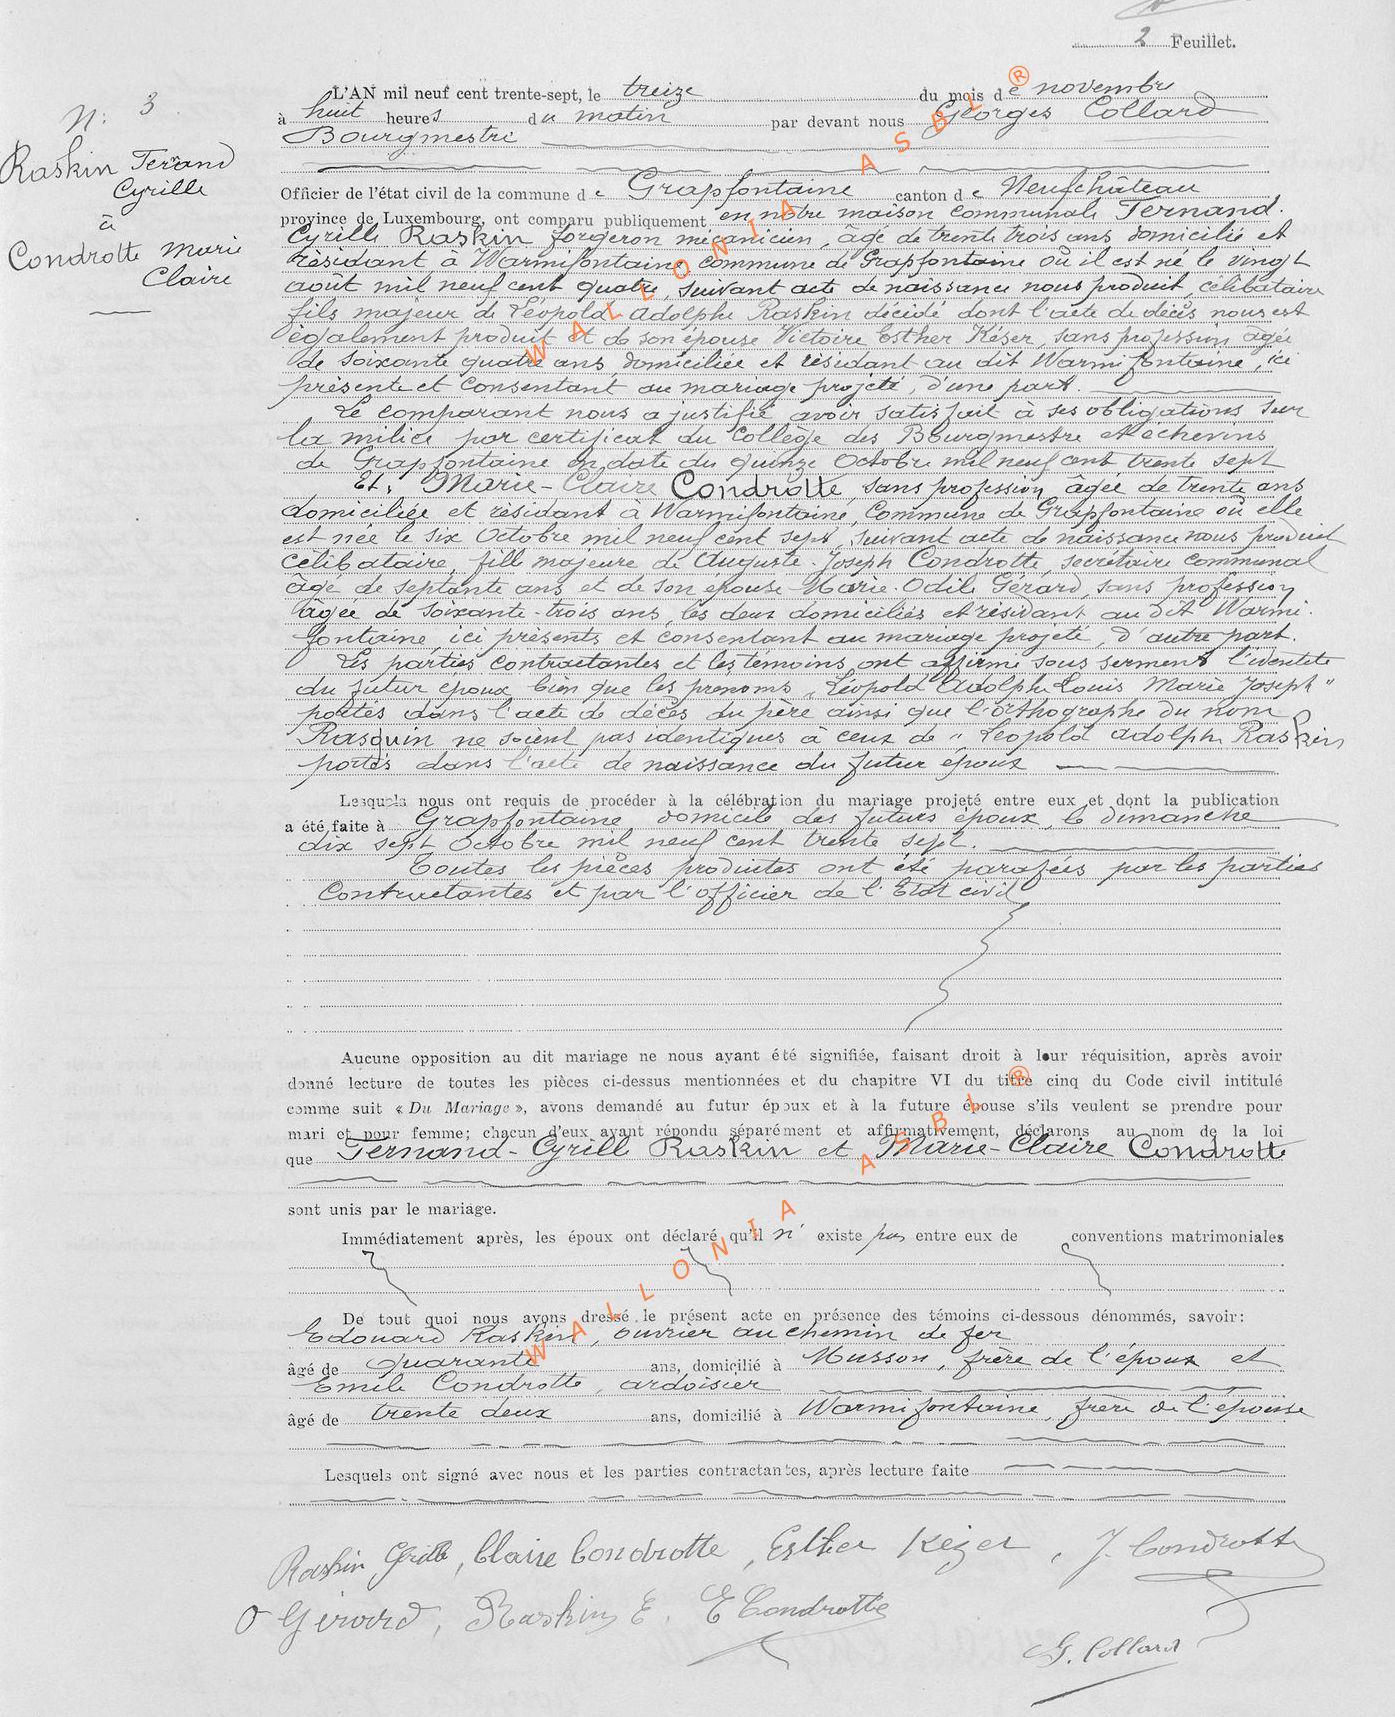 2 Feuillet.
N: 3
Raskin Fernand
Cyrille
à
Condrotte Marie
Claire
L'AN mil neuf cent trente-sept, le treize du mois de novembre
à huit heures du matin par devant nous Georges Collard
Bourgmestre
Officier de l'état civil de la commune de Grapfontaine canton de Neufchâteau
province de Luxembourg, ont comparu publiquement en notre maison communale Fernand.
Cyrille Raskin forgeron mécanicien, âgé de trente trois ans domicilié et
résidant à Warmifontaine commune de Grapfontaine où il est né le vingt
août mil neuf cent quatre, suivant acte de naissance nous produit, célibataire
fils majeur de Léopold Adolphe Raskin décédé dont l'acte de décès nous est
également produit et de son épouse Victoire Esther Késer, sans profession agée
de soixante quatre ans domiciliée et résidant au dit Warmifontaine, ici
présente et consentant au mariage projeté, d'une part.
Le comparant nous a justifié avoir satisfait à ses obligations sur
la milice par certificat du Collège des Bourgmestre et échevins
de Grapfontaine en date du quinze Octobre mil neuf cent trente sept
Et, Marie-Claire Condrotte, sans profession, âgée de trente ans
domiciliée et résidant à Warmifontaine, Commune de Grapfontaine où elle
est née le six Octobre mil neuf cent sept, suivant acte de naissance nous produit
célibataire, fille majeure de Auguste Joseph Condrotte, secrétaire communal
âgé de septante ans et de son epouse Marie-Odile Gérard, sans profession
âgée de soixante-trois ans, les deux domiciliés et résidant au dit Warmi-
fontaine, ici présents et consentant au mariage projeté, d'autre part.
Les parties contractantes et les témoins ont affirmé sous serment l'identité
du futur époux bien que les prenoms "Léopold Adolphe Louis Marie Joseph"
portés dans l'acte de décès du père ainsi que l'orthographe du nom
Rasquin ne soient pas identiques à ceux de "Léopold Adolphe Raskin
portés dans l'acte de naissance du futur époux
Lesquels nous ont requis de procéder à la célébration du mariage projeté entre eux et dont la publication
a été faite à Grapfontaine domicile des futurs époux, le dimanche
dix sept Octobre mil neuf cent trente sept.
Toutes les pièces produites ont été parafées par les parties
Contractantes et par l'officier de l'Etat civil
Aucune opposition au dit mariage ne nous ayant été signifiée, faisant droit à leur réquisition, après avoir
donné lecture de toutes les pièces ci-dessus mentionnées et du chapitre VI du titre cinq du Code civil intitulé
comme suit « Du Mariage », avons demandé au futur époux et à la future épouse s'ils veulent se prendre pour
mari et pour femme; chacun d'eux ayant répondu séparément et affirmativement, déclarons au nom de la loi
que Fernand-Cyrille Raskin et Marie-Claire Condrotte
sont unis par le mariage.
Immédiatement après, les époux ont déclaré qu'il n'existe pas entre eux de conventions matrimoniales
De tout quoi nous avons dressé le présent acte en présence des témoins ci-dessous dénommés, savoir:
Edouard Raskin, ouvrier au chemin de fer
âgé de quarante ans, domicilié à Musson, frère de l'époux et
Emile Condrotte, ardoisier
âgé de trente deux ans, domicilié à Warmifontaine, frère de l'épouse
Lesquels ont signé avec nous et les parties contractantes, après lecture faite
Raskin Cyrille, Claire Condrotte, Esther Kézer, J. Condrotte
O Gérard, Raskin E. E Condrotte
G. Collard
WALLONIA ASBL ®
WALLONIA ASBL ®